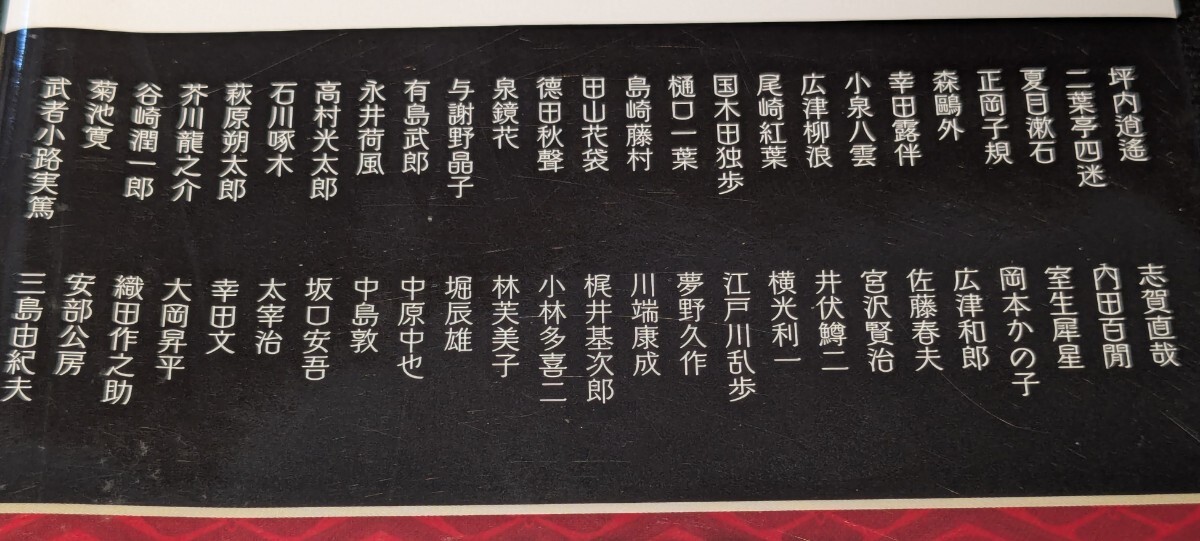 坪内逍遙
二葉亭四迷
夏目漱石
正岡子規
森鷗外
幸田露伴
小泉八雲
広津柳浪
尾崎紅葉
国木田独歩
樋口一葉
島崎藤村
田山花袋
徳田秋聲
泉鏡花
与謝野晶子
有島武郎
永井荷風
高村光太郎
石川啄木
萩原朔太郎
芥川龍之介
谷崎潤一郎
菊池寛
武者小路実篤
志賀直哉
内田百閒
室生犀星
岡本かの子
広津和郎
佐藤春夫
宮沢賢治
井伏鱒二
横光利一
江戸川乱歩
夢野久作
川端康成
梶井基次郎
小林多喜二
林芙美子
堀辰雄
中原中也
中島敦
坂口安吾
太宰治
幸田文
大岡昇平
織田作之助
安部公房
三島由紀夫